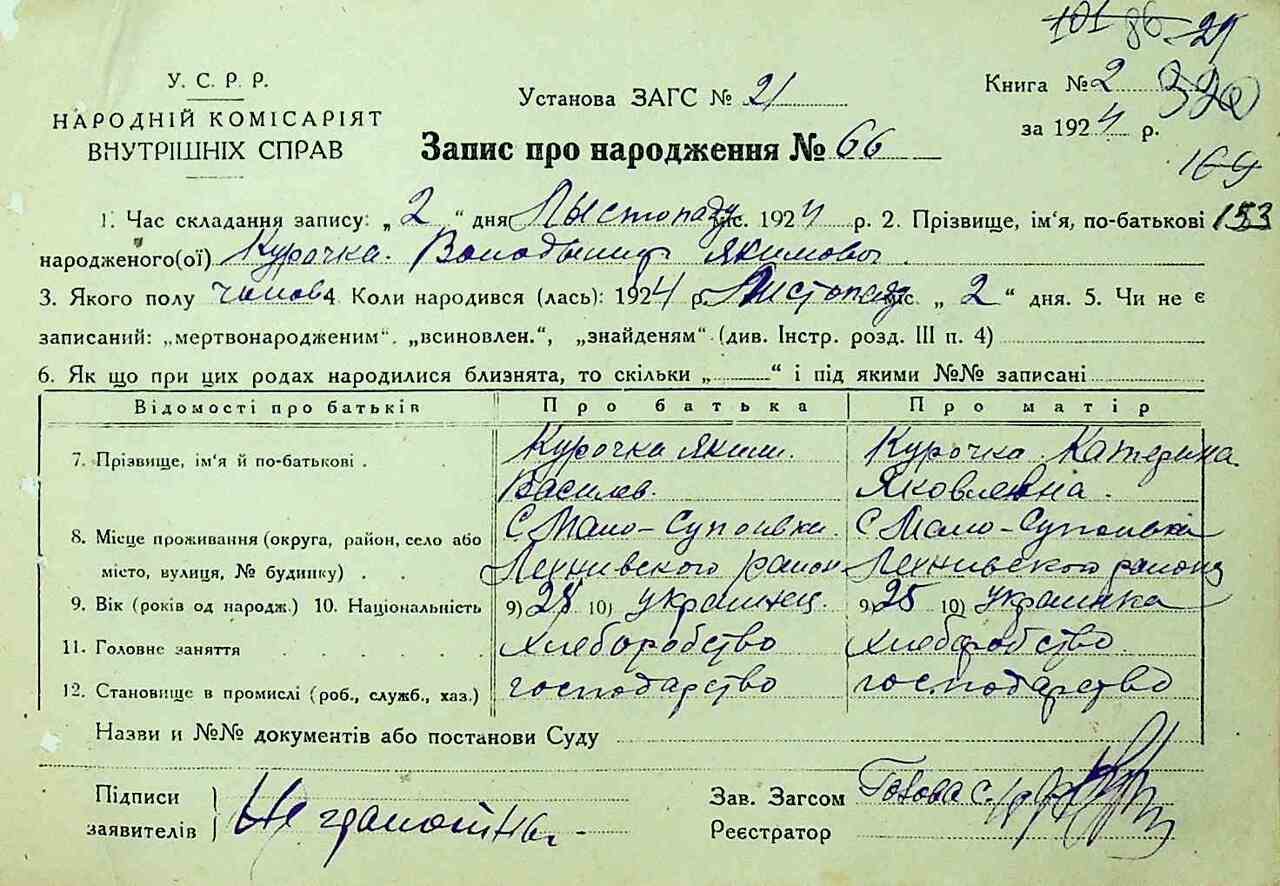 101 86 29
У. С. Р. Р.
НАРОДНІЙ КОМІСАРІЯТ
ВНУТРІШНІХ СПРАВ
Установа ЗАГС № 21
Запис про народження № 66
Книга № 2 320
за 1924 р.
169
1. Час складання запису: „ 2 “ дня Лыстопаду міс. 1924 р. 2. Прізвище, ім'я, по-батькові 153
народженого(ої) Курочка Володымир Якимовы
3. Якого полу 4 Коли народився (лась): 1924 р. Листопаду міс. „ 2 “ дня. 5. Чи не є
записаний: „мертвонародженим“, „всиновлен.“, „знайденям“ (див. Інстр. розд. III п. 4)
6. Як що при цих родах народилися близнята, то скільки „ “ і під якими №№ записані
Відомості про батьків Про батька Про матір
7. Прізвище, ім'я й по-батькові . Курочка Яким Курочка Катерина
Василев. Яковлевна.
8. Місце проживання (округа, район, село або С Мало-Супоивки С Мало-Супоивки
місто, вулиця, № будинку) . . району
9. Вік (років од народж.) 10. Національність 9) 28 10) украинец. 9) 25 10) украинка
11. Головне заняття . . . . хлеборобство хлеборобство
12. Становище в промислі (роб., служб., хаз.) господарство господарство
Назви и №№ документів або постанови Суду
Підписи
заявителів
Не грамотны
Зав. Загсом Голова с.
Реєстратор